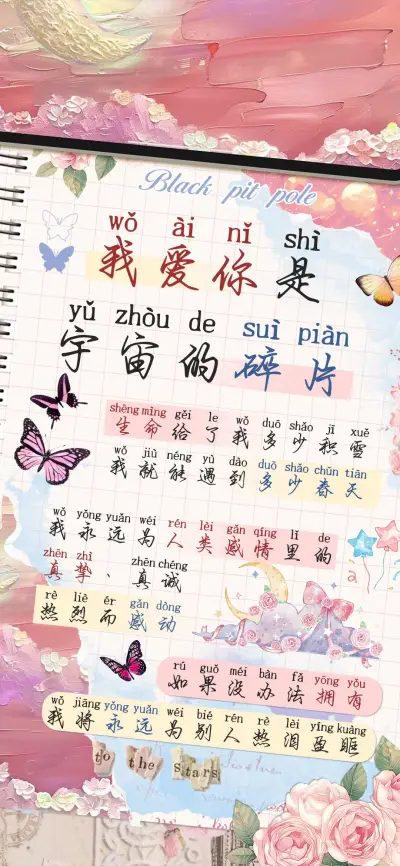 Black pit pole
wǒ ài nǐ shì
我爱你是
yǔ zhòu de suì piàn
宇宙的碎片
shēng mìng gěi le wǒ duō shǎo jī xuě
生命给了我多少积雪
wǒ jiù néng yù dào duō shǎo chūn tiān
我就能遇到多少春天
wǒ yǒng yuǎn wéi rén lèi gǎn qíng lǐ de
我永远为人类感情里的
zhēn zhì zhēn chéng
真挚、真诚
rè liè ér gǎn dòng
热烈而感动
rú guǒ méi bàn fǎ yōng yǒu
如果没办法拥有
wǒ jiāng yǒng yuǎn wéi bié rén rè lèi yíng kuàng
我将永远为别人热泪盈眶
to the stars